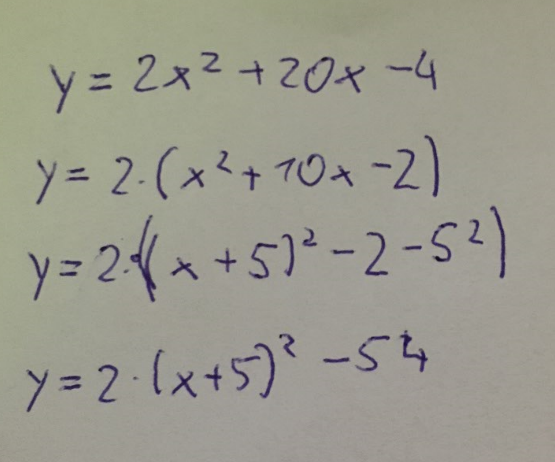 y = 2x² + 20x - 4
y = 2·(x² + 10x - 2)
y = 2·((x + 5)² - 2 - 5²)
y = 2·(x+5)² - 54